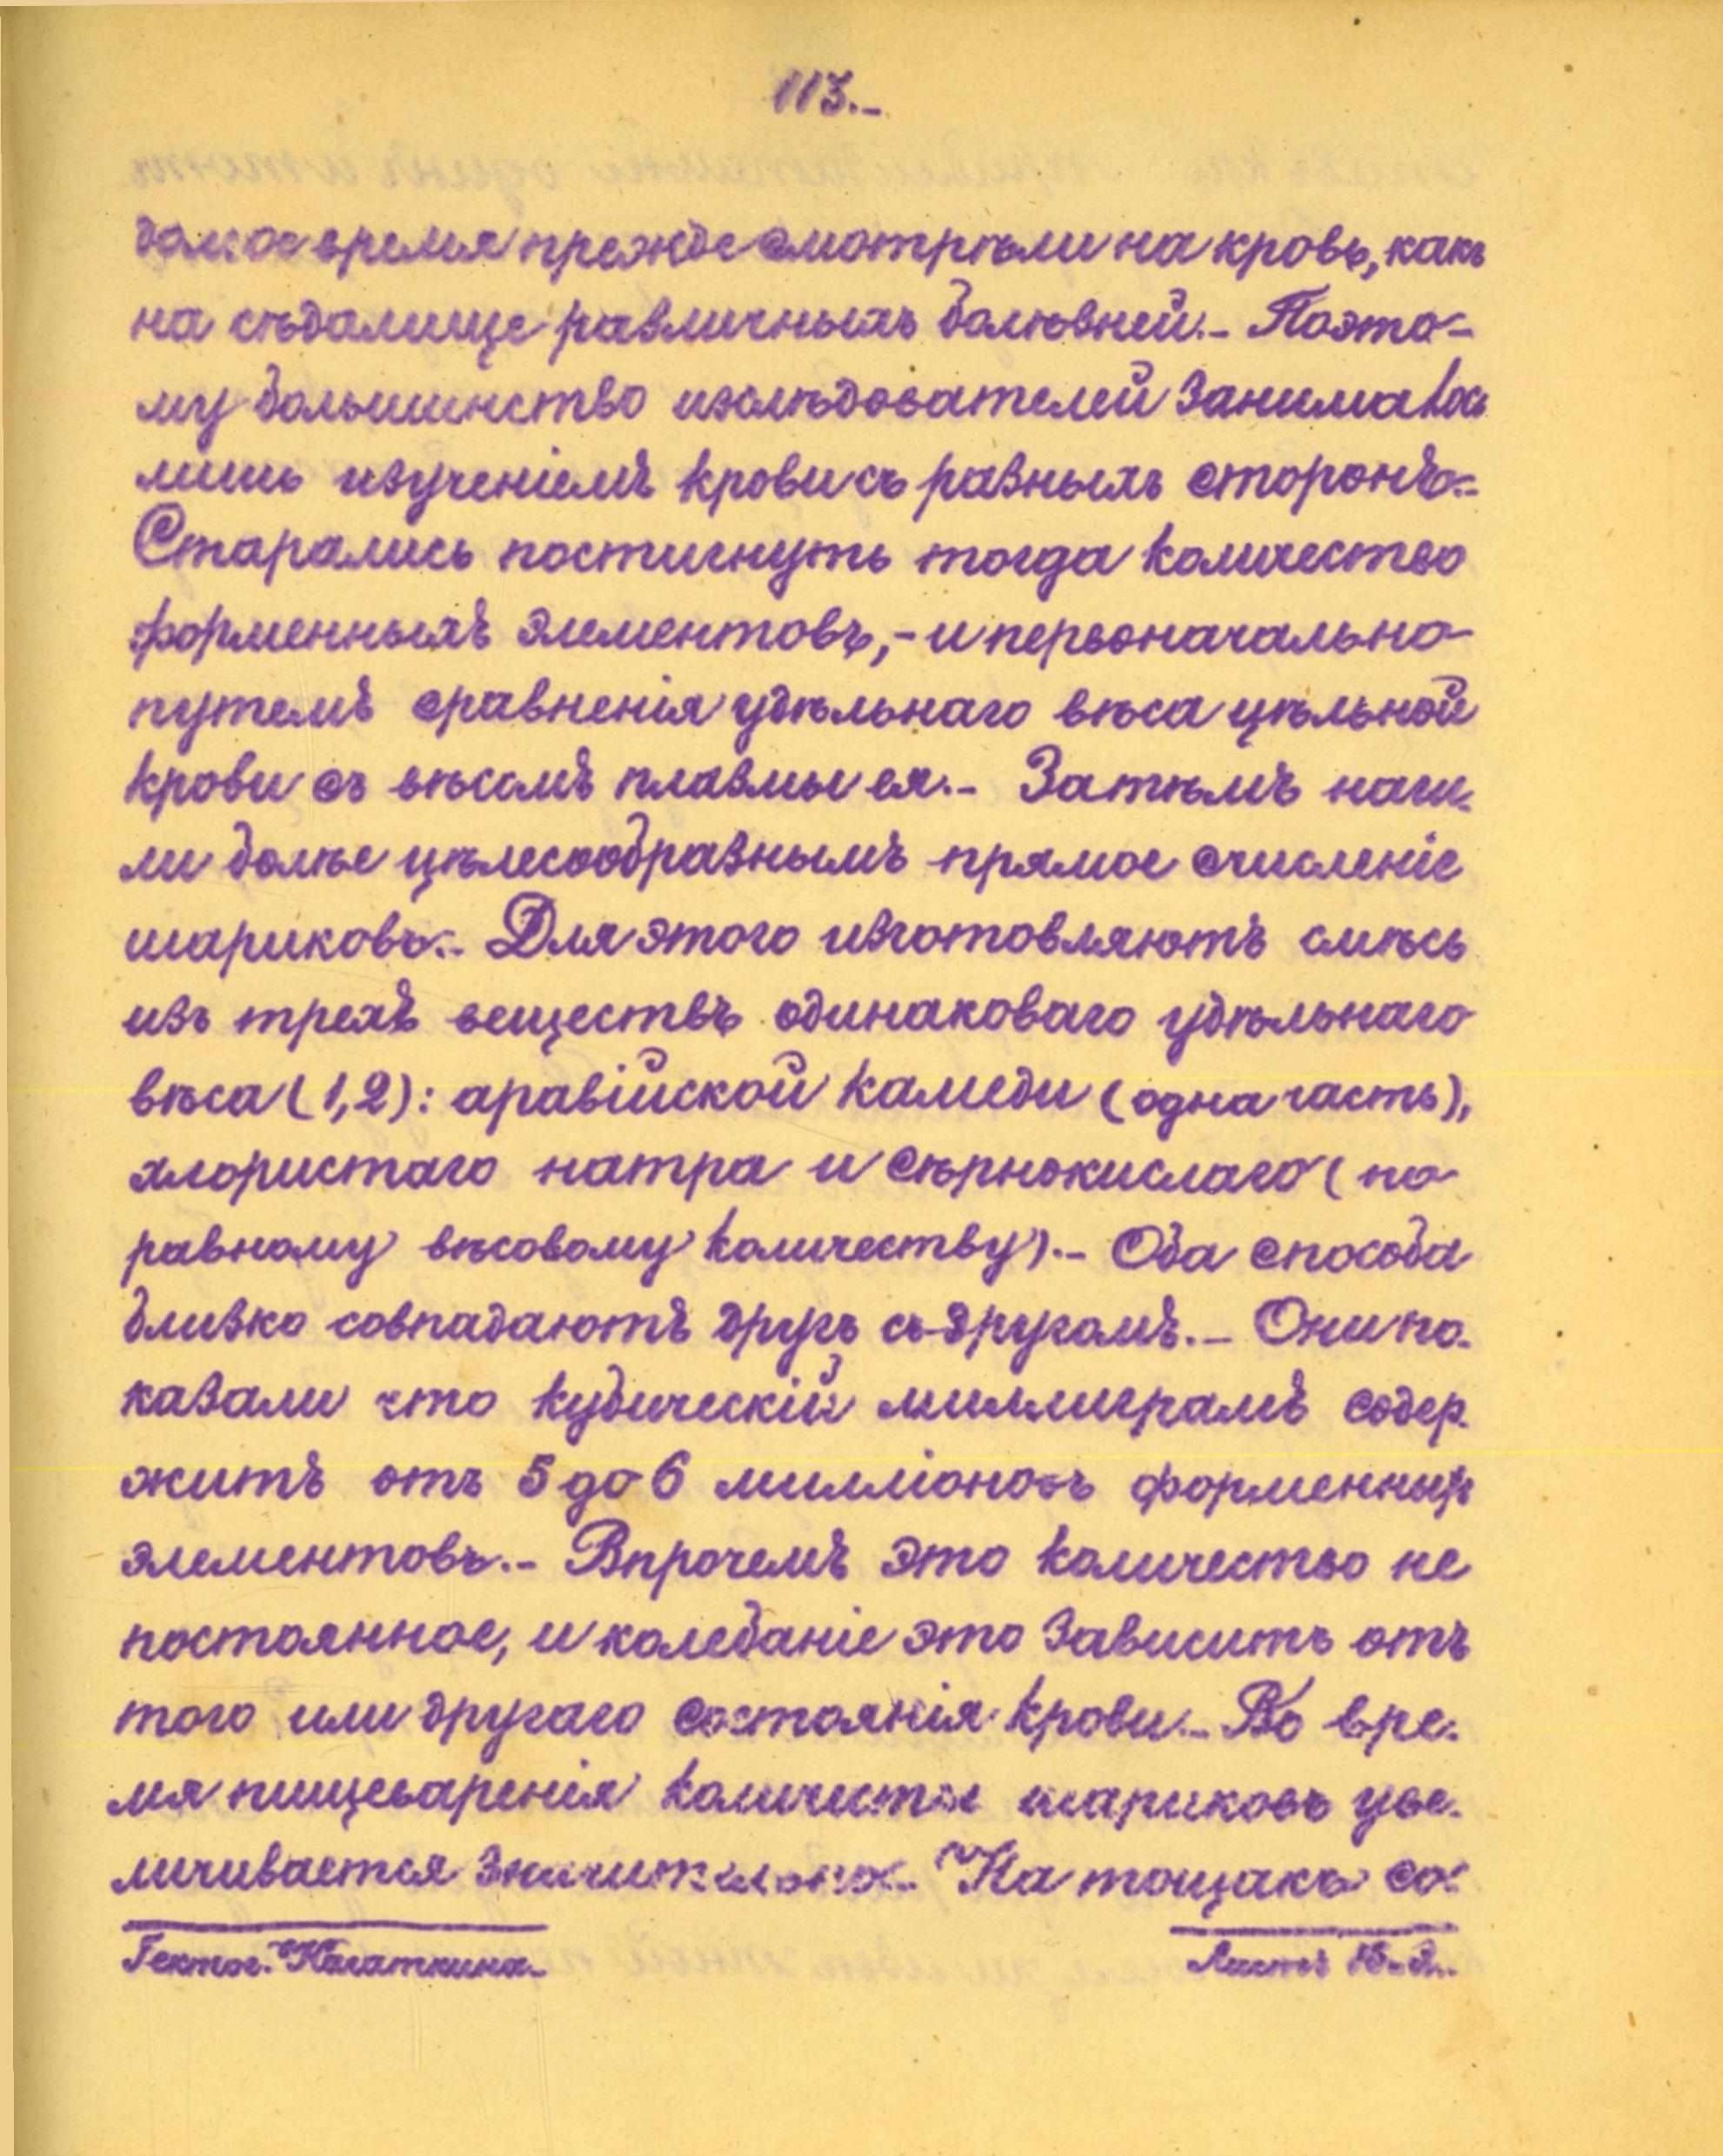 113.-
долгое время прежде смотрѣли на кровь, какъ
на сѣдалище различныхъ болѣзней.- Поэто-
му большинство изслѣдователей занималось
лишь изученіемъ крови съ разныхъ сторонъ.-
Старались постигнуть тогда количество
форменныхъ элементовъ,- и первоначально
путемъ сравненія удѣльнаго вѣса цѣльной
крови съ вѣсомъ плазмы ея.- Затѣмъ наш-
ли болѣе цѣлесообразнымъ прямое счисленіе
шариковъ.- Для этого изготовляютъ смѣсь
изъ трехъ веществъ одинаковаго удѣльнаго
вѣса (1,2): аравійской камеди (одна часть),
хлористаго натра и сѣрнокислаго (по
равному вѣсовому количеству).- Оба способа
близко совпадаютъ другъ съ другомъ.- Они по-
казали что кубическій миллиграмъ содер-
житъ отъ 5 до 6 милліоновъ форменныхъ
элементовъ.- Впрочемъ это количество не
постоянное, и колебаніе это зависитъ отъ
того или другаго состоянія крови.- Во вре-
мя пищеваренія количество шариковъ уве-
личивается значительно.- На тощакъ со-
Гектог. Кагаткина.-
Листъ 15-й.